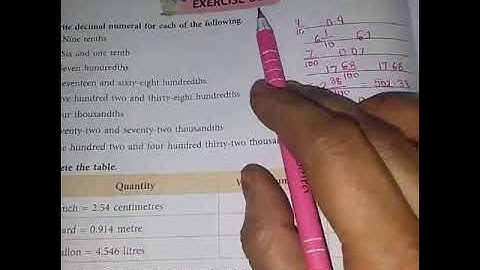 EXERCISE
rite decimal numeral for each of the following.
Nine tenths
Six and one tenth
even hundredths
eventeen and sixty-eight hundredths
ive hundred two and thirty-eight hundredths
our thousandths
venty-two and seventy-two thousandths
ne hundred two and four hundred thirty-two thousan
ete the table.
Quantity
nch = 2.54 centimetres
ard = 0.914 metre
allon = 4.546 litres
10 0.9
6 1/10 6.1
7/100 0.07
17 68/100 17.68
502 38